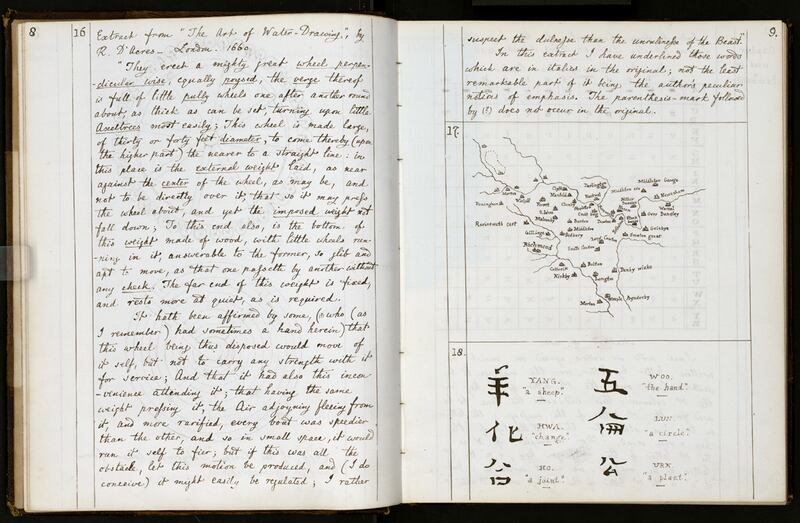 8
16
Extract from "The Art of Water-Drawing", by
R. D'Acres _ London. 1660.
"They erect a mighty great wheel perpen-
-dicular wise, equally poysed, the verge thereof
is full of little pully wheels one after another round
about, as thick as can be set, turning upon little
Axeltrees most easily; This wheel is made large,
of thirty or forty feet diameter, to come thereby (upon
the higher part) the nearer to a straight line: in
this place is the external weight laid, as near
against the center of the wheel, as may be, and
not to be directly over it, that so it may press
the wheel about, and yet the imposed weight not
fall down; To this end also, is the bottom of
this weight made of wood, with little wheels run-
-ning in it, answerable to the former, so glib and
apt to move, as that one passeth by another without
any check. The far end of this weight is fixed,
and rests more at quiet, as is required.
It hath been affirmed by some, (who (as
I remember) had sometimes a hand herein) that
this wheel being thus disposed would move of
it self, but not to carry any strength with it
for service; And that it had also this incon
-venience attending it; that having the same
weight pressing it, the Air adjoyning fleeing from
it, and more rarified, every bout was speedier
than the other, and so in small space, it would
run it self to fier; but if this was all the
obstacle, let this motion be produced, and (I do
conceive) it might easily be regulated; I rather
9.
suspect the dulnesse than the unrulinesse of the Beast."
In this extract I have underlined those words
which are in italics in the original; not the least
remarkable part of it being the author's peculiar
notions of emphasis. The parenthesis-mark followed
by (?) does not occur in the original.
17.
Darlington
Middleton George
Middleton
Newsham
Barningham
Ravensworth cast
Gilling
Richmond
Middleton
Smeton great
Catterick
Kirkby
Bolton
Langton
Danby wiske
Morton
Aynderby
18.
羊
YANG.
"a sheep."
五
WOO.
"the hand".
化
HWA.
"change".
侖
LUN.
"a circle".
合
HO.
"a joint".
"a plant".